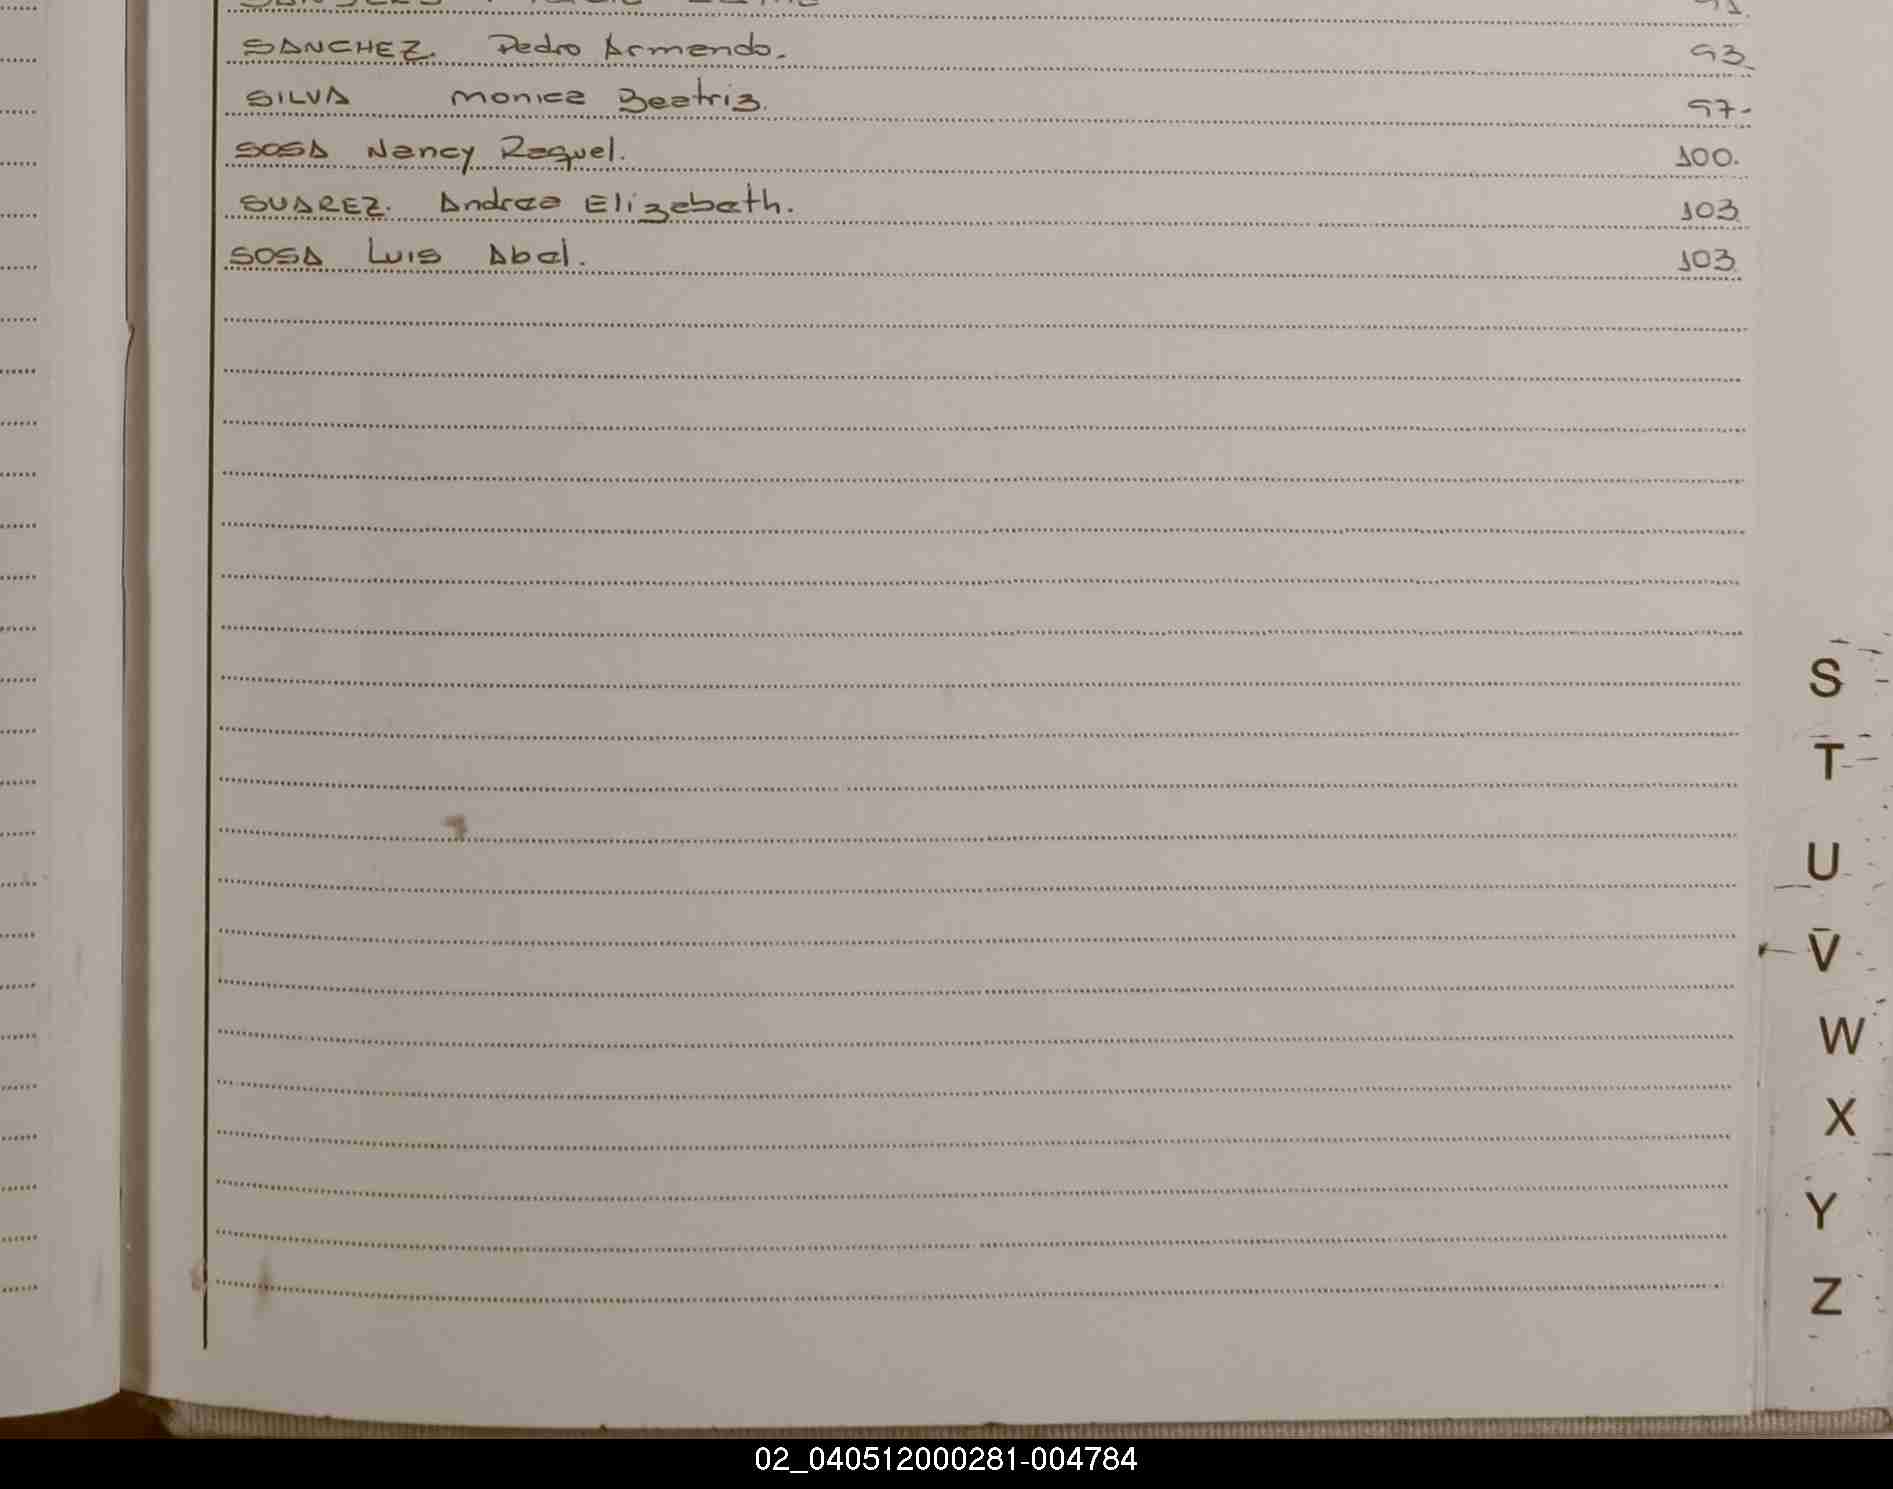 SANCHEZ. Pedro Armando. 93.
SILVA Monica Beatriz. 97.
SOSA Nancy Raquel. 100.
SUAREZ. Andrea Elizabeth. 103
SOSA Luis Abel. 103.
S
T
U
V
W
X
Y
Z
02_040512000281-004784